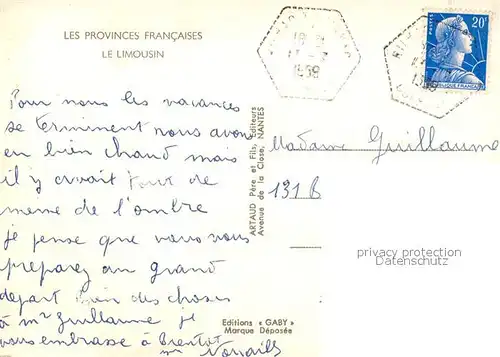 LES PROVINCES FRANÇAISES
LE LIMOUSIN
1959
POSTES
20F
Pour nous les vacances
se terminent nous avons
eu bien chaud mais
il y avait tout de
meme de l'ombre
je pense que vous vous
preparez au grand
depart bien des choses
à mr Guillaume je
vous embrasse à Bientot
ARTAUD Père et Fils, Editeurs
Avenue de la Close, NANTES
Madame Guillaume
131 B
privacy protection
Datenschutz
Editions « GABY »
Marque Déposée